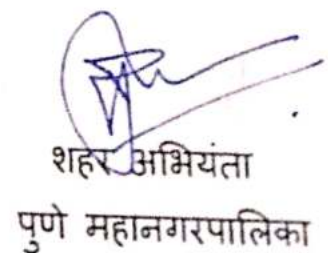 शहर अभियंता
पुणे महानगरपालिका